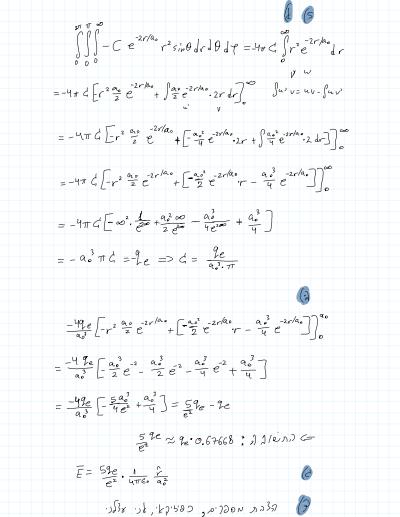 1 (א
∫₀^{2π} ∫₀^{π} ∫₀^{∞} -C e^{-2r/a₀} r² sinθ dr dθ dφ = -4πC ∫₀^{∞} r² e^{-2r/a₀} dr
= -4πC [-r² a₀/2 e^{-2r/a₀} + ∫ a₀/2 e^{-2r/a₀} · 2r dr]₀^{∞}   ∫u'v = uv - ∫uv'
= -4πC [-r² a₀/2 e^{-2r/a₀} + [-a₀²/4 e^{-2r/a₀} · 2r + ∫ a₀²/4 e^{-2r/a₀} · 2 dr]]₀^{∞}
= -4πC [-r² a₀/2 e^{-2r/a₀} + [-a₀²/2 e^{-2r/a₀} r - a₀³/4 e^{-2r/a₀}]]₀^{∞}
= -4πC [-∞² · 1/e^{∞} + a₀²∞/2e^{∞} - a₀³/4e^{2∞} + a₀³/4]
= -a₀³ πC = q_e ⇒ C = q_e/(a₀³ · π)
-4q_e/a₀³ [-r² a₀/2 e^{-2r/a₀} + [-a₀²/2 e^{-2r/a₀} r - a₀³/4 e^{-2r/a₀}]]₀^{a₀}
= -4q_e/a₀³ [-a₀³/2 e^{-2} - a₀³/2 e^{-2} - a₀³/4 e^{-2} + a₀³/4]
= -4q_e/a₀³ [-5a₀³/4e² + a₀³/4] = 5/e² q_e - q_e
5q_e/e² ≈ q_e · 0.67668 :
E̅ = 5q_e/e² · 1/4πε₀ · r̂/a₀²